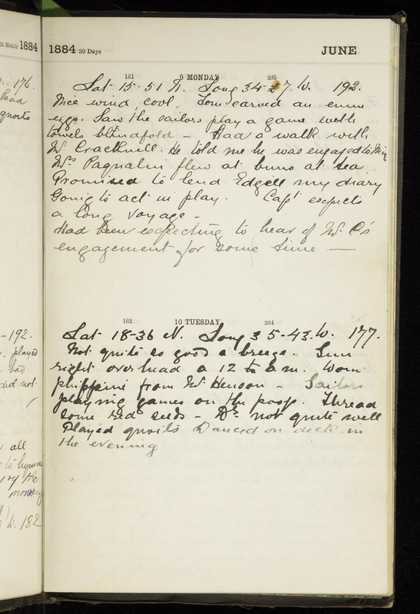 1884
1884 30 Days
JUNE
161 9 MONDAY 205
Lat 15-51 N. Long 34-27 W. 192.
Nice wind, cool. Tom carved an emu
egg. Saw the sailors play a game with
towels blindfold - Had a walk with
Mr Cracknell. He told me he was engaged to Miss
Mrs Pagnalini flew at buns at tea
Promised to lend Edgell my diary
Going to act in play. Capt expects
a long voyage -
Had been expecting to hear of Mr C's
engagement for some time —
162 10 TUESDAY 204
Lat 18-36 N. Long 35-43 W. 177.
Not quite so good a breeze. Sun
right overhead a 12 to 2 m. Won
phippine from Mr Henson - Sailors
playing games on the poop. Thread
some red seeds - Dr not quite well
Played quoits Danced on deck in
the evening
176
had
quoits
-192.
played
had
did not
all
to
the
W. 182